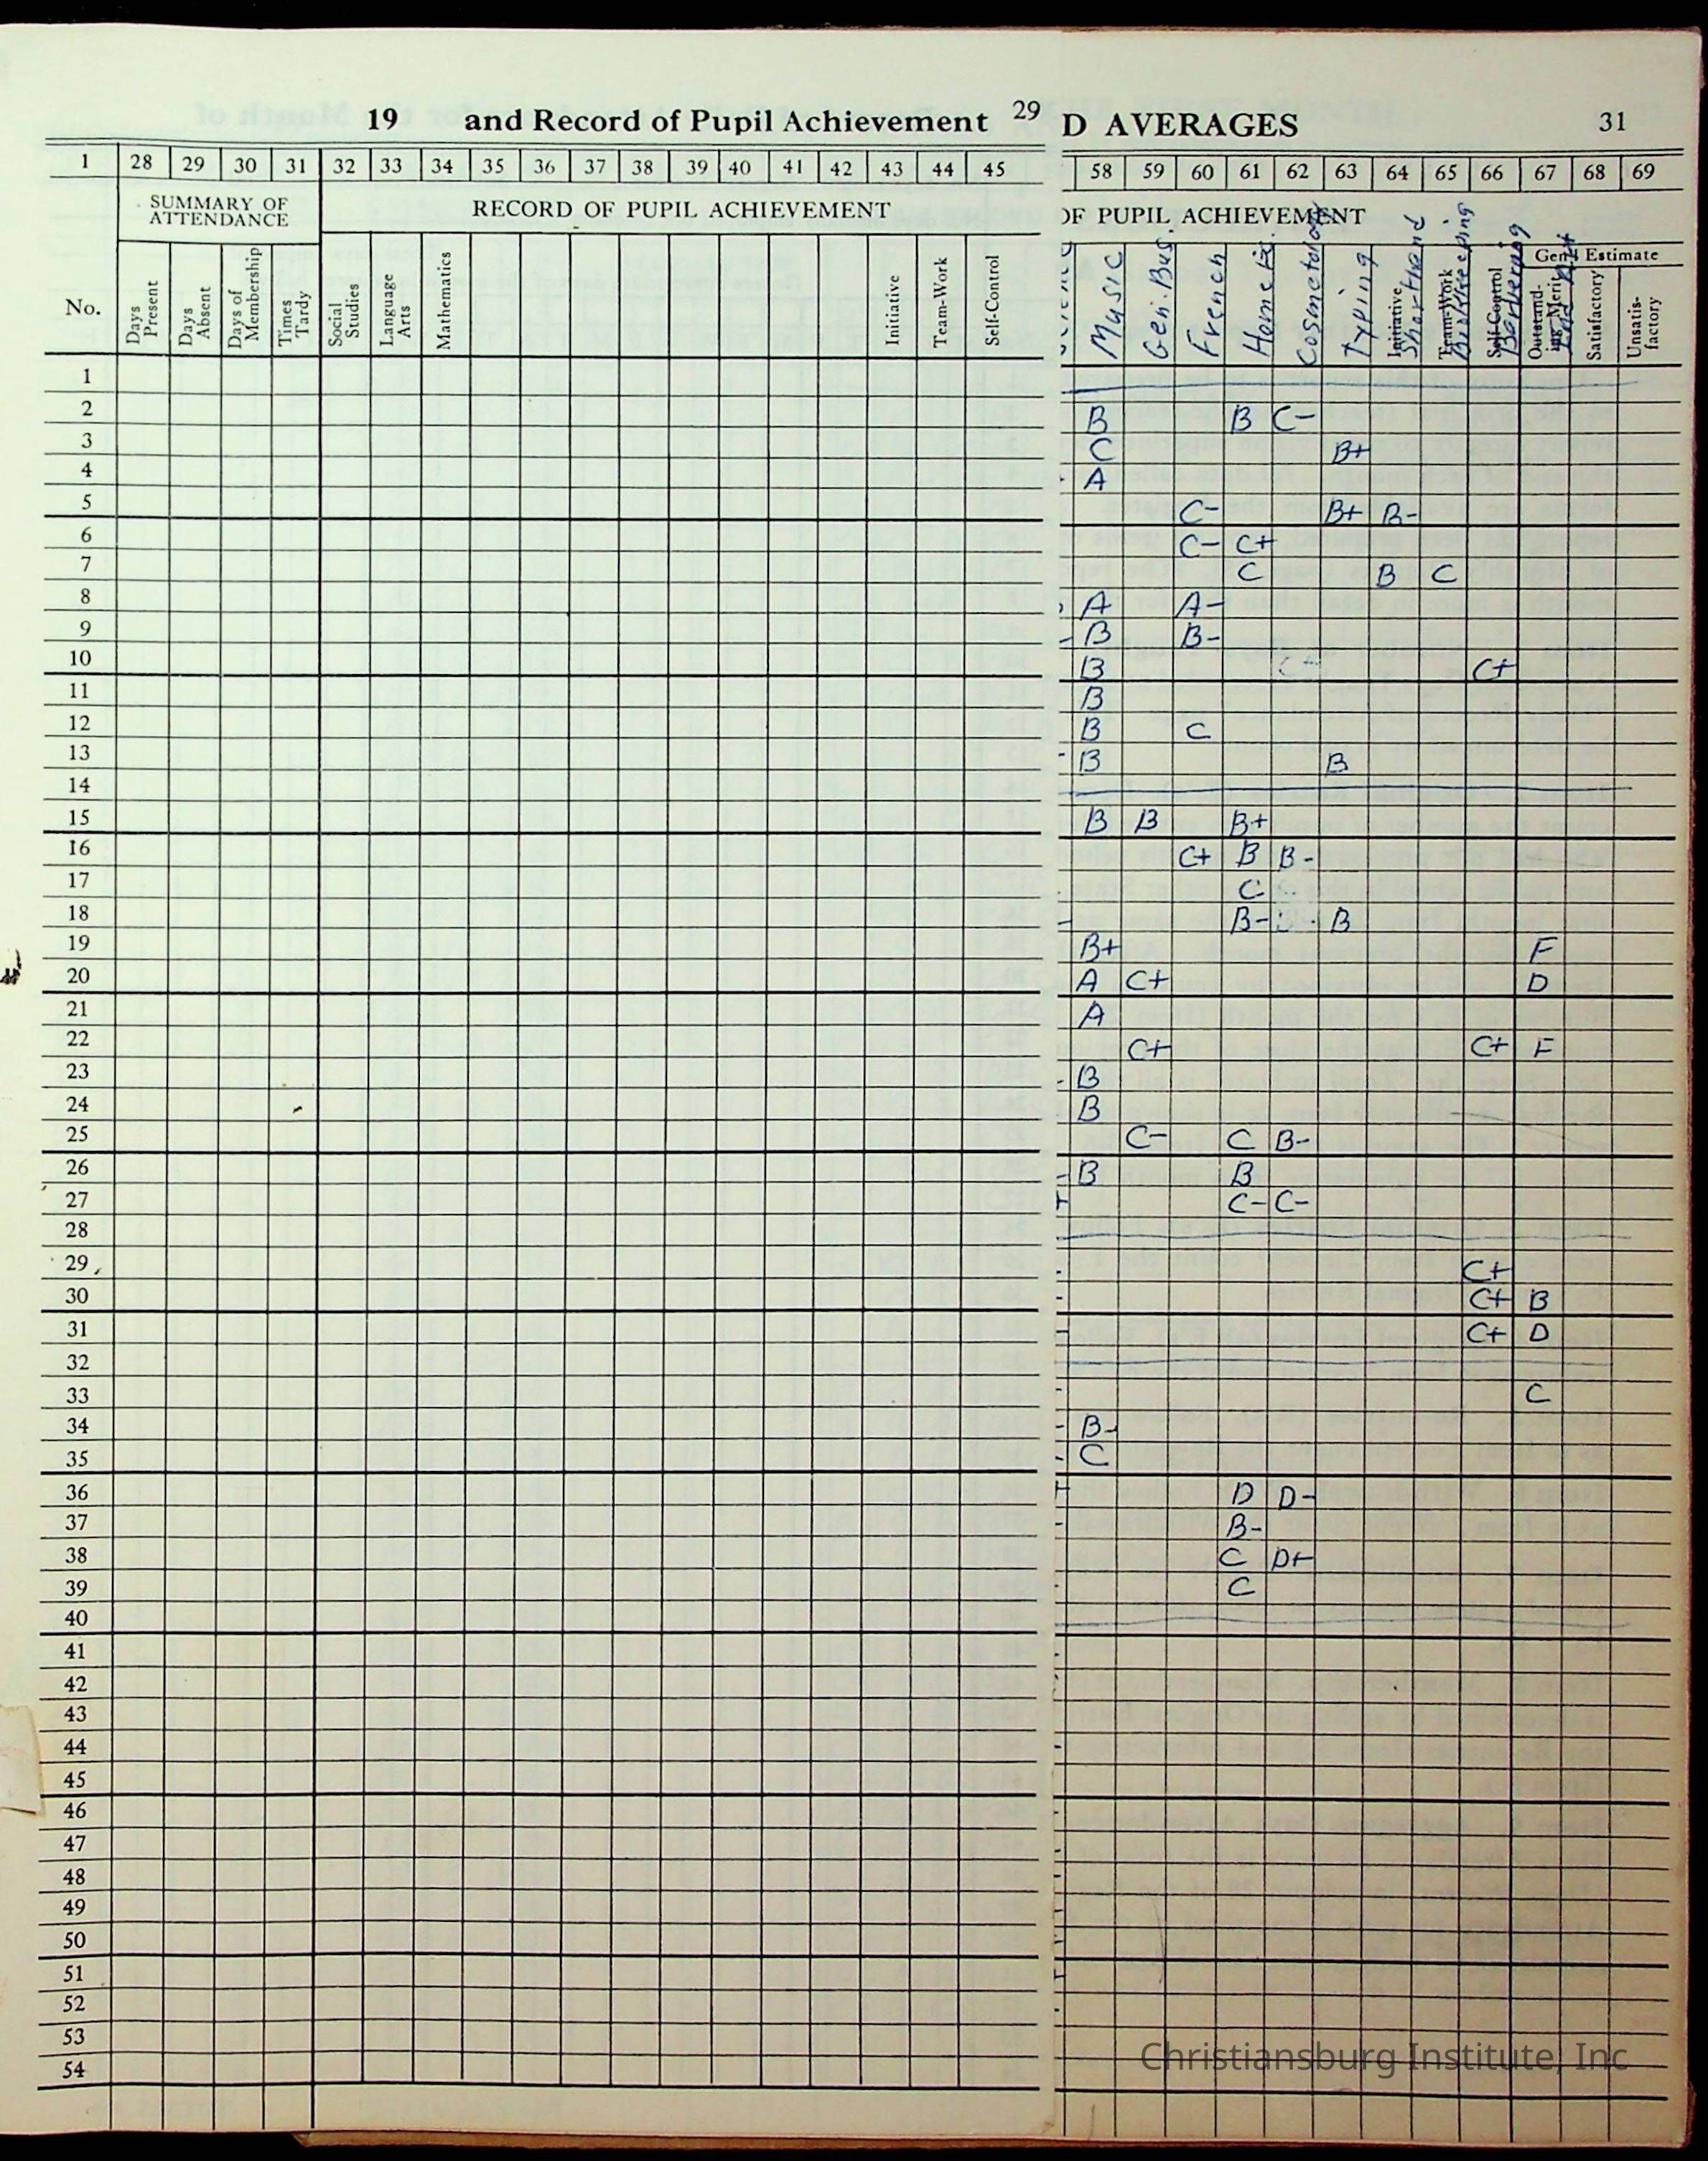 19 and Record of Pupil Achievement 29
D AVERAGES 31
1 28 29 30 31 32 33 34 35 36 37 38 39 40 41 42 43 44 45
58 59 60 61 62 63 64 65 66 67 68 69
SUMMARY OF ATTENDANCE
RECORD OF PUPIL ACHIEVEMENT
OF PUPIL ACHIEVEMENT
No.
Days Present
Days Absent
Days of Membership
Times Tardy
Social Studies
Language Arts
Mathematics
Initiative
Team-Work
Self-Control
Music
Gen. Bus.
French
Home Ec.
Cosmetology
Typing
Initiative
Shorthand
Team-Work
Bookkeeping
Self Control
Barbering
Gen'l Estimate
Outstanding Merit
Satisfactory
Unsatisfactory
1
2 B B C-
3 C B+
4 A
5 C- B+ B-
6 C- C+
7 C B C
8 A A-
9 B B-
10 B C+
11 B
12 B C
13 B B
14
15 B B B+
16 C+ B B-
17 C
18 B- B
19 B+ F
20 A C+ D
21 A
22 C+ C+ F
23 B
24 B
25 C- C B-
26 B B
27 C- C-
28
29 C+
30 C+ B
31 C+ D
32
33 C
34 B-
35 C
36 D D-
37 B-
38 C D+
39 C
40
41
42
43
44
45
46
47
48
49
50
51
52
53
54
Christiansburg Institute, Inc